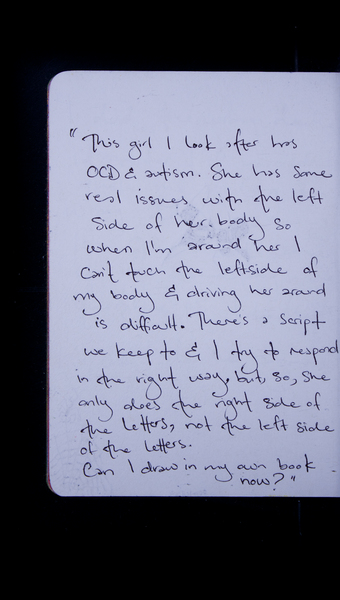 "This girl I look after has
OCD & autism. She has some
real issues with the left
side of her body so
when I'm around her I
can't touch the leftside of
my body & driving her around
is difficult. There's a script
we keep to & I try to respond
in the right way, but, so, she
only does the right side of
the letters, not the left side
of the letters.
Can I draw in my own book
now?"